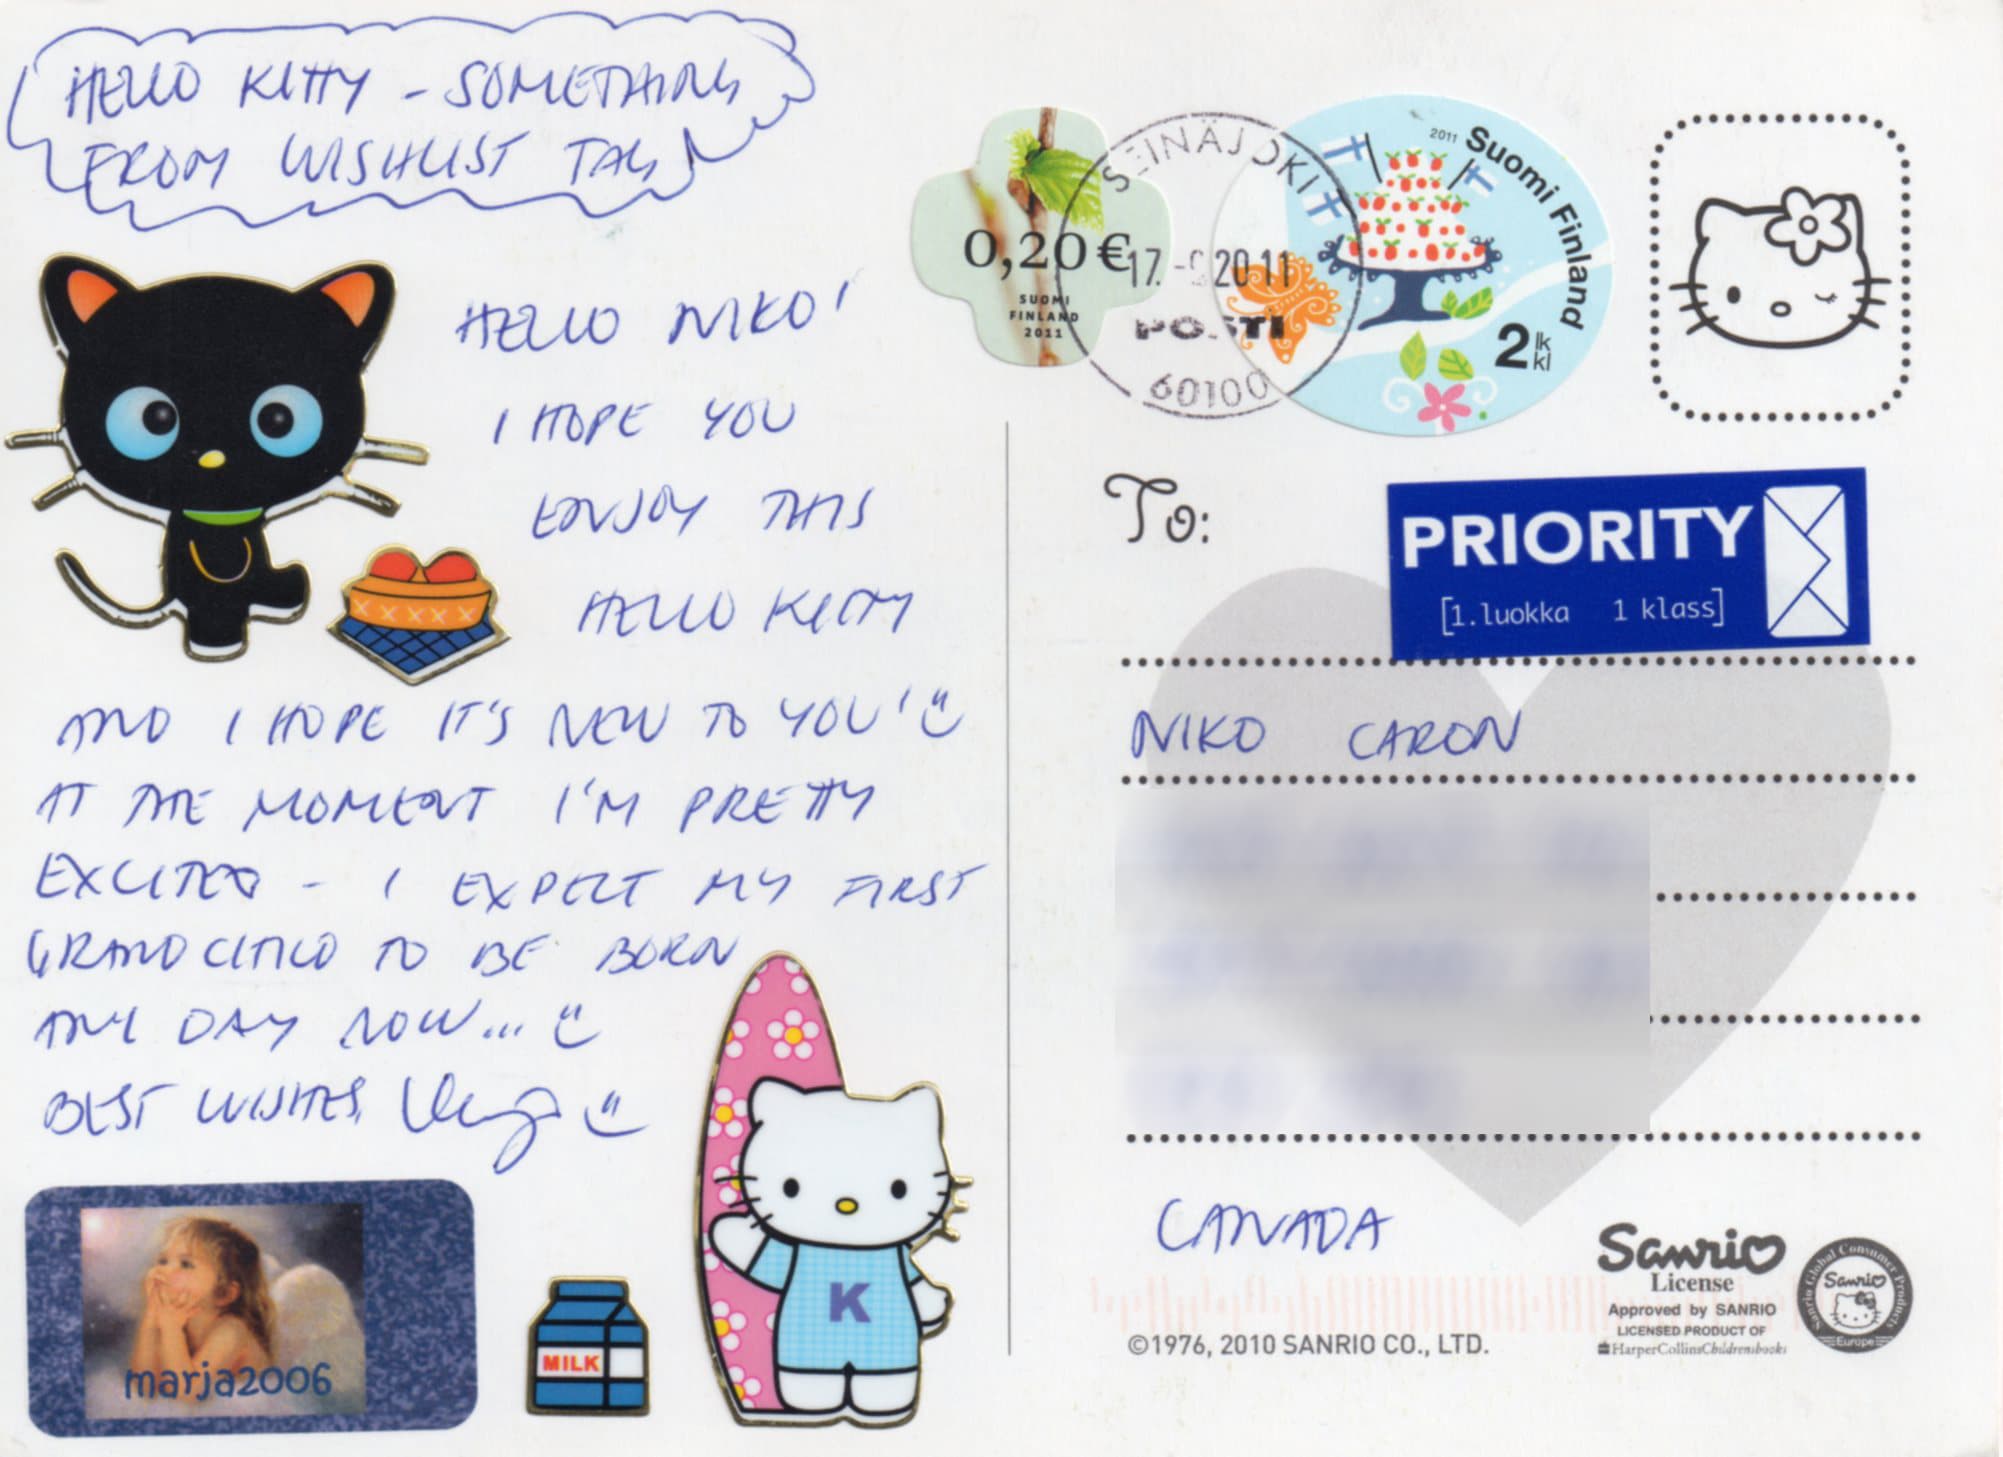 HELLO KITTY - SOMETHING
FROM WISHLIST TAG
HELLO NIKO!
I HOPE YOU
ENJOY THIS
HELLO KITTY
AND I HOPE IT'S NEW TO YOU!
AT THE MOMENT I'M PRETTY
EXCITED - I EXPECT MY FIRST
GRANDCHILD TO BE BORN
ANY DAY NOW...
BEST WISHES,
marja2006
MILK
K
0,20 €
SUOMI
FINLAND
2011
SEINÄJOKI
17.
2011
POSTI
60100
2011 Suomi Finland
2 lk
kl
To:
PRIORITY
[1.luokka 1 klass]
NIKO CARON
CANADA
©1976, 2010 SANRIO CO., LTD.
Sanrio
License
Approved by SANRIO
LICENSED PRODUCT OF
HarperCollinsChildrensbooks
Sanrio Global Consumer Products
Sanrio
Europe